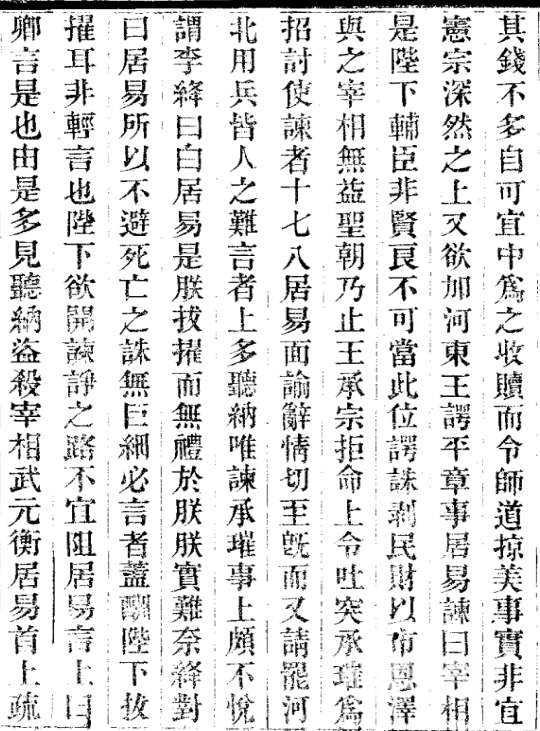 其錢不多自可宜中爲之收贖而令師道掠美事實非宜
憲宗深然之上又欲加河東王諤平章事居易諫曰宰相
是陛下輔臣非賢良不可當此位諤誅剥民財以市恩澤
與之宰相無益聖朝乃止王承宗拒命上令吐突承璀爲
招討使諫者十七八居易面諭辭情切至旣而又請罷河
北用兵皆人之難言者上多聽納唯諫承璀事上頗不悅
謂李絳曰白居易是朕拔擢而無禮於朕朕實難奈絳對
曰居易所以不避死亡之誅無巨細必言者蓋酬陛下拔
擢耳非輕言也陛下欲開諫諍之路不宜阻居易言上曰
卿言是也由是多見聽納盜殺宰相武元衡居易首上疏